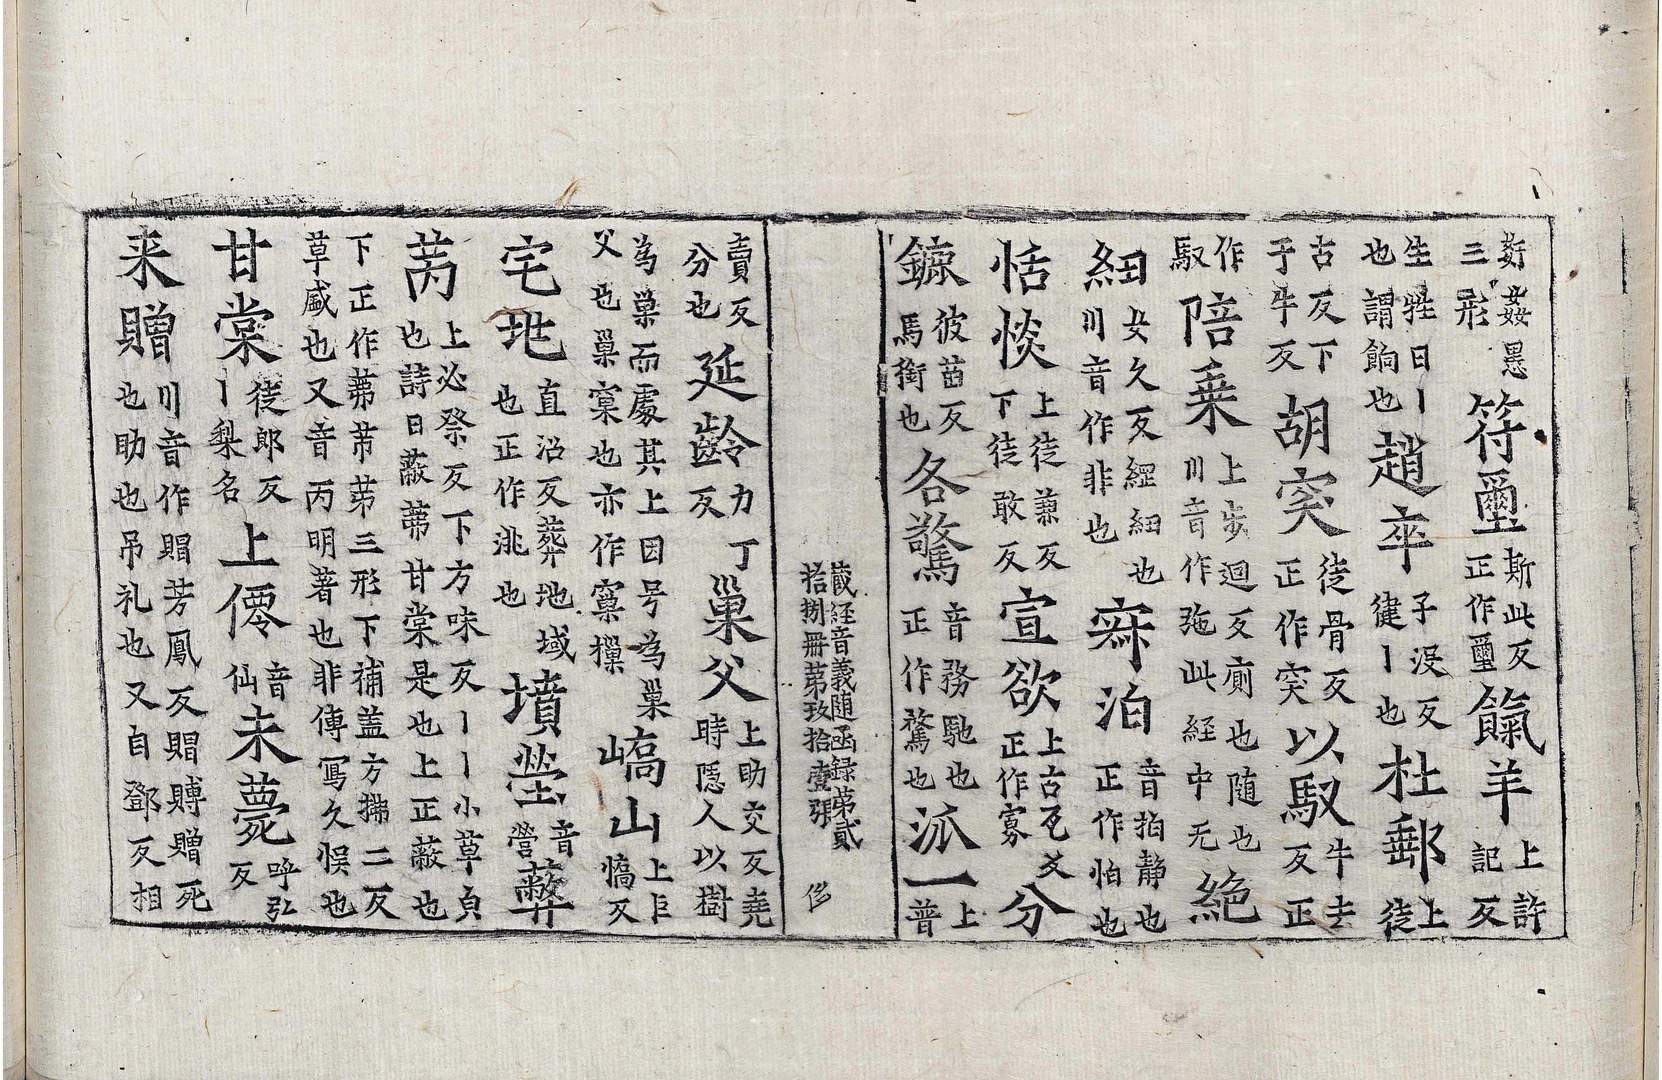 姧姦𢙣三形符璽斯此反正作璽餼羊上許記反
生牲曰丨也謂餉也趙卒子没反健丨也杜郵上徒
古反下于牛反胡突徒骨反正作突以馭牛去反正
作馭陪乗上步迴反廁也随也川音作㢮此経中无絶
紐女久反經紐也川音作非也㝥泊音拍静也正作怕也
恬惔上徒兼反下徒敢反宣欲上古瓦反正作寡分
鑣彼苗反馬銜也各騖音務馳也正作騖也派一上普
蔵経音義随函録第貳拾捌冊第玫拾壹張 侈
賣反分也延齡力丁反巢父上助交反堯時隱人以樹
為巢而處其上因号為巢父也巢窠也亦作窼樔嶠山上巨憍反
宅地直沿反葬地域也正作洮也墳塋音營蔽
芾上必祭反下方味反丨丨小草㒵也詩曰蔽芾甘棠是也上正蔽也
下正作芾芇茀三形下補盖方拂二反草盛也又音丙明著也非傳寫久悮也
甘棠徒郎反丨梨名上僊音仙未薨呼弘反
来贈川音作賵芳鳳反賵賻贈死也助也吊礼也又自鄧反相